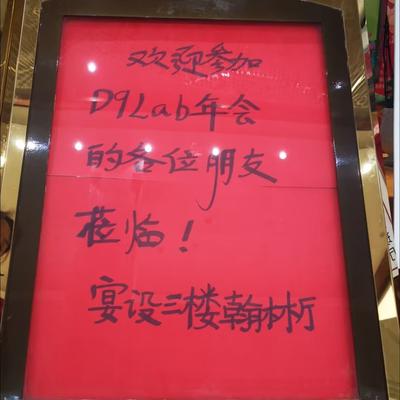 欢迎参加
D9Lab年会
的各位朋友
莅临！
宴设三楼翰林厅